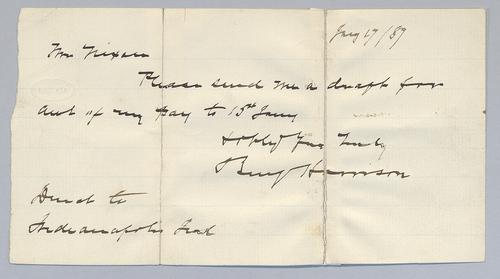 Jany 17/87
Mr Nixon
Please send me a draft for
amt of my pay to 15th Jany
Yours Truly
Benj Harrison
Direct to
Indianapolis Ind